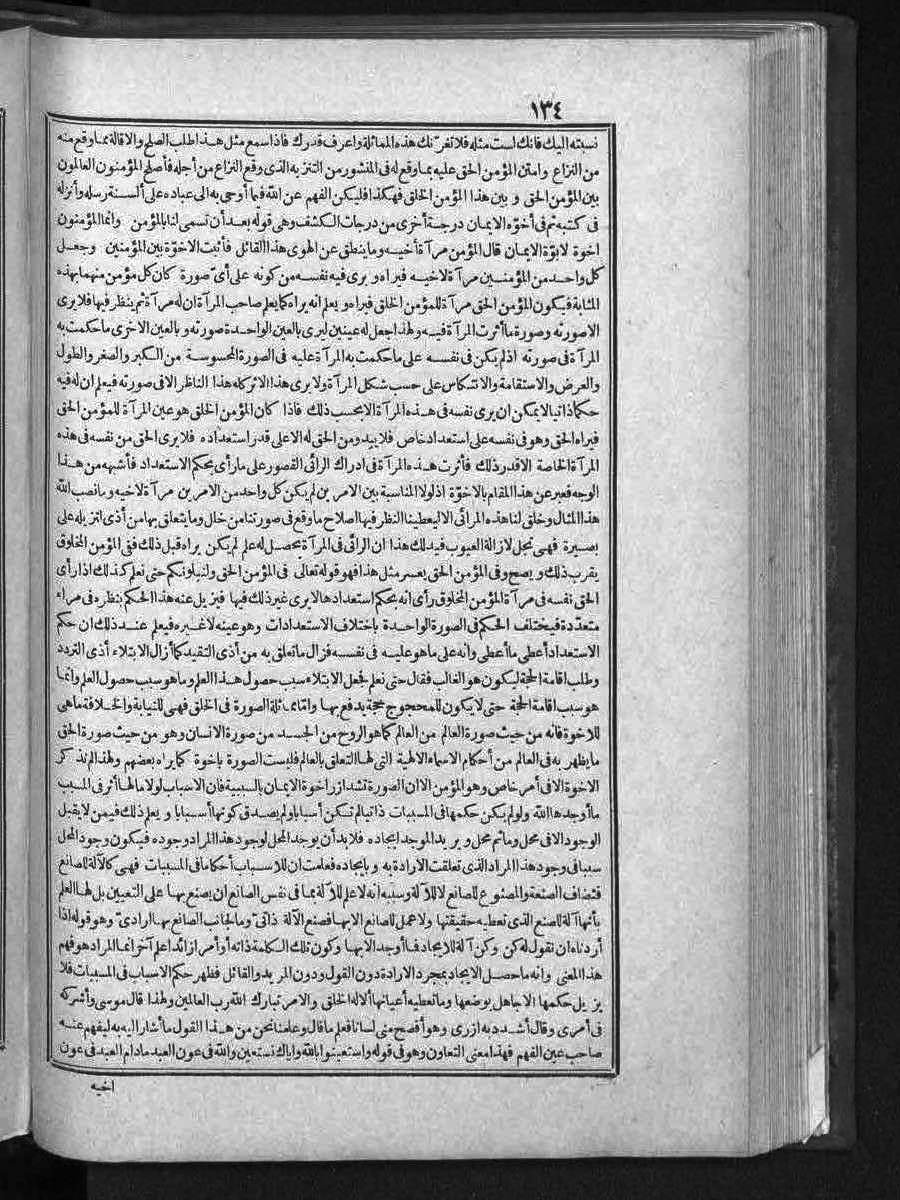 ١٣٤
نسبته اليك فانك لست مثله فلا تغرّنك هذه المماثلة واعرف قدرك فاذا سمع مثل هذا طلب الصلح والاقالة مما وقع منه
من النزاع وامتن المؤمن الحق عليه بما وقع له فى المنشور من التنزيه الذى وقع النزاع من أجله فأصلح المؤمنون العالمون
بين المؤمن الحق و بين هذا المؤمن الخلق فهكذا فليكن الفهم عن الله فيما أوحى به الى عباده على ألسنة رسله وأنزله
فى كتبه ثم فى أخوّة الايمان درجة أخرى من درجات الكشف وهى قوله بعد أن تسمى لنا بالمؤمن وانما المؤمنون
اخوة لابوّة الايمان قال المؤمن مرآة أخيه وما ينطق عن الهوى هذا القائل فأثبت الاخوّة بين المؤمنين وجعل
كل واحد من المؤمنين مرآة لاخيه فيراه و يرى فيه نفسه من كونه على أىّ صورة كان كل مؤمن منهما بهذه
المثابة فيكون المؤمن الحق مرآة للمؤمن الخلق فيراه و يعلم انه يراه كما يعلم صاحب المرآة ان له مرآة ثم ينظر فيها فلا يرى
الا صورته وصورة ما أثرت المرآة فيه ولهذا جعل له عينين ليرى بالعين الواحدة صورته و بالعين الاخرى ما حكمت به
المرآة فى صورته اذ لم يكن فى نفسه على ما حكمت به المرآة عليه فى الصورة المحسوسة من الكبر والصغر والطول
والعرض والاستقامة والانتكاس على حسب شكل المرآة ولا يرى هذا الاثر كله هذا الناظر الا فى صورته فيعلم ان له فيه
حكما ذاتيا لا يمكن ان يرى نفسه فى هذه المرآة الا بحسب ذلك فاذا كان المؤمن الخلق هو عين المرآة للمؤمن الحق
فيراه الحق وهو فى نفسه على استعداد خاص فلا يبدو من الحق له الا على قدر استعداده فلا يرى الحق من نفسه فى هذه
المرآة الخاصة الا قدر ذلك فأثرت هذه المرآة فى ادراك الرائى القصور على ما رأى بحكم الاستعداد فأشبه من هذا
الوجه فعبر عن هذا المقام بالاخوّة اذ لولا المناسبة بين الامرين لم يكن كل واحد من الامرين مرآة لاخيه وما نصب الله
هذا المثال وخلق لنا هذه المرائى الا ليعطينا النظر فيها اصلاح ما وقع فى صورتنا من خلل وما يتعلق بها من أذى لنزيله على
بصيرة فهى تجل لازالة العيوب فيدلك هذا ان الرائى فى المرآة يحصل له علم لم يكن يراه قبل ذلك ففى المؤمن المخلوق
يقرب ذلك و يصح وفى المؤمن الحق يعسر مثل هذا فهو قوله تعالى فى المؤمن الحق ولنبلونكم حتى نعلم كذلك اذا رأى
الحق نفسه فى مرآة المؤمن المخلوق رأى انه بحكم استعدادها لا يرى غير ذلك فيها فيزيل عنه هذا الحكم بنظره فى مراء
متعدّدة فيختلف الحكم فى الصورة الواحدة باختلاف الاستعدادات وهو عينه لا غيره فيعلم عند ذلك ان حكم
الاستعداد أعطى ما أعطى وانه على ما هو عليه فى نفسه فزال ما تعلق به من أذى التقيد كما أزال الابتلاء أذى التردد
وطلب اقامة الحجة ليكون هو الغالب فقال حتى نعلم فجعل الابتلاء سبب حصول هذا العلم وما هو سبب حصول العلم وانما
هو سبب اقامة الحجة حتى لا يكون للمحجوج حجة يدفع بها وامّا مماثلة الصورة فى الخلق فهى للنيابة والخلافة ما هى
للاخوة فانه من حيث صورة العالم من العالم كما هو الروح من الجسد من صورة الانسان وهو من حيث صورة الحق
ما يظهر به فى العالم من أحكام الاسماء الالهية التى لها التعلق بالعالم فليست الصورة باخوة كما يراه بعضهم ولهذا لم نذكر
الاخوة الا فى أمر خاص وهو المؤمن الا ان الصورة تشدّ ازر اخوة الايمان بالسببية فان الاسباب لولا ما لها أثر فى المسبب
ما أوجدها الله ولو لم يكن حكمها فى المسببات ذاتيا لم تكن أسبابا ولم يصدق كونها أسبابا و يعلم ذلك فيمن لا يقبل
الوجود الا فى محل وما ثم محل و يريد الموجد ايجاده فلا بد أن يوجد المحل لوجود هذا المراد وجوده فيكون وجود المحل
سببا فى وجود هذا المراد الذى تعلقت الارادة به و بايجاده فعلمت ان للاسباب أحكاما فى المسببات فهى كالآلة للصانع
فتضاف الصنعة والمصنوع للصانع لا للآلة وسببه انه لا علم للآلة بما فى نفس الصانع ان يصنع بها على التعيين بل لها العلم
بأنها آلة للصنع الذى تعطيه حقيقتها ولا عمل للصانع الا بها فصنع الآلة ذاتىّ وما لجانب الصانع بها ارادىّ وهو قوله اذا
أردناه ان نقول له كن وكن آلة للايجاد فما أوجد الا بها وكون تلك الكلمة ذاته أو أمر زائد اعلم آخر انما المراد هو فهم
هذا المعنى وانه ما حصل الايجاد بمجرد الارادة دون القول ودون المريد والقائل فظهر حكم الاسباب فى المسببات فلا
يزيل حكمها الا جاهل بوضعها وما تعطيه أعيانها ألا له الخلق والامر تبارك الله رب العالمين ولهذا قال موسى وأشركه
فى أمرى وقال أشدد به ازرى وهو أفصح منى لسانا فعلم ما قال وعلمنا نحن من هذا القول ما أشار اليه به ليفهم عنه
صاحب عين الفهم فهذا معنى التعاون وهو فى قوله واستعينوا بالله واياك نستعين والله فى عون العبد ما دام العبد فى عون
اخيه